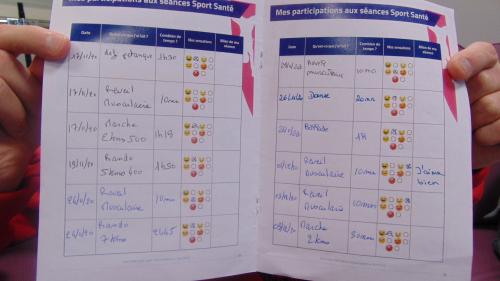 Mes participations aux séances Sport Santé
Date
Qu'est-ce que j'ai fait ?
Combien de temps ?
Mes sensations
Bilan de ma séance
17/11/20
pétanque
1h30
17/11/20
Réveil
Musculaire
10mn
17/11/20
Marche
2kms 500
1h19
19/11/20
Rando
5kms 400
1h50
24/11/20
Réveil
Musculaire
10mn
24/11/20
Rando
7 kms
2h45
Mes participations aux séances Sport Santé
Date
Qu'est-ce que j'ai fait ?
Combien de temps ?
Mes sensations
Bilan de ma séance
Réveil
musculaire
10mn
Danse
20mn
1h
Réveil
musculaire
10mn
J'aime
bien
Réveil
Musculaire
10mn
Marche
2 kms
30mn